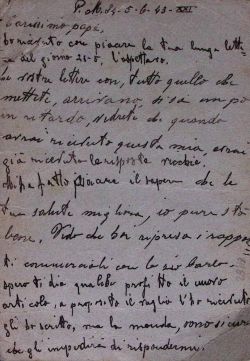 P.M. 54 - 5-6-43-XXI
Carissimo papà,
ho ricevuto con piacere la tua lunga lette
ra del giorno 25-5, l'aspettavo.
Le vostre lettere con, tutto quello che
mettete, arrivano, sia un po'
in ritardo, vedrete che quando
avrai ricevuto questa mia avrai
già ricevuto la risposta
Mi ha fatto piacere il sapere che la
tua salute migliora, io pure sto
bene. Vedo che hai ripreso i rappor
ti commerciali con lo zio Carlo.
spero ti dia qualche profitto il nuovo
articolo, a proposito il vaglia l'ho ricevuto
gli ho scritto, ma la monda, sono sicuro
che gli impedirà di rispondermi.